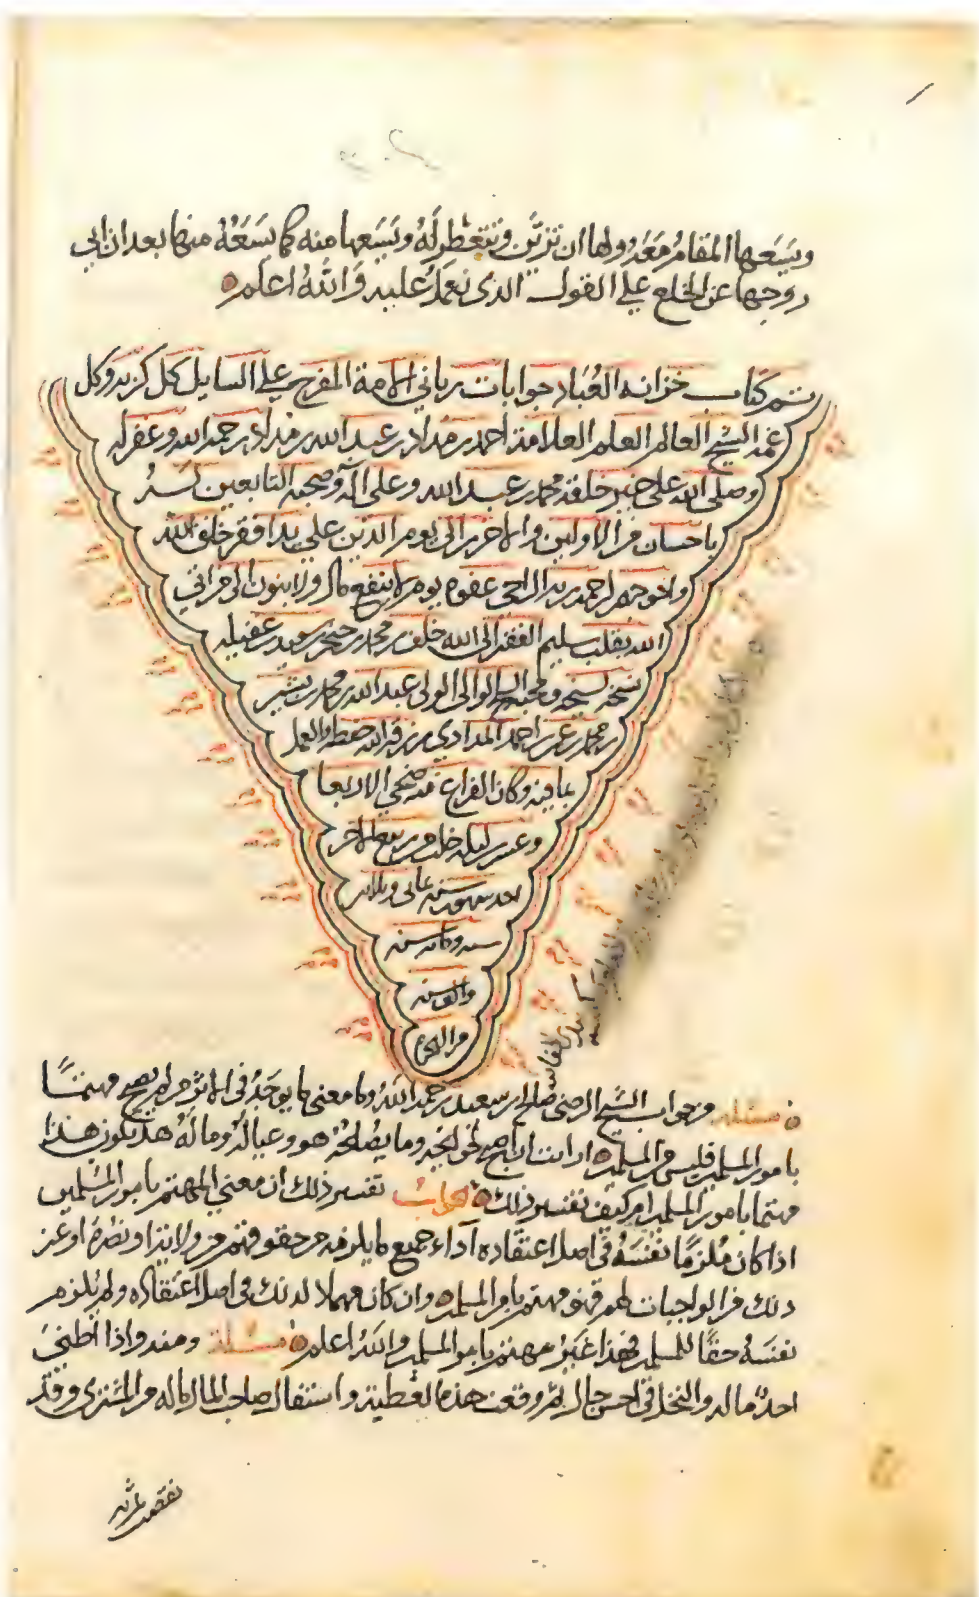 ويسعها المقام معه ولها ان تتزين وتتعطر له ويسعها منه كما يسعه منها بعد ان ابى
زوجها عن الخلع على القول الذى نعمل عليه والله اعلم
تم كتاب خزانه العباد جوابات ربانى الامة المفرج على السايل كل كربه وكل
غمه الشيخ العالم العلم العلامة احمد بن مداد بن عبد الله بن مداد رحمه الله وغفر له
وصلى الله على خير خلقه محمد بن عبد الله وعلى اله وصحبه التابعين
باحسان من الاولين والاخرين الى يوم الدين على يد افقر خلق الله
واحوجهم لرحمة ربه الراجى عفوه يوم لا ينفع مال ولا بنون الا من اتى
الله بقلب سليم الفقير الى الله خلف بن محمد بن خنجر بن سعيد بن
نسخه لشيخه ومحبه الشيخ الوالى الولى عبد الله بن محمد بن بشير
بن محمد بن احمد المدادى رزقه الله حفظه والعمل
بما فيه وكان الفراغ منه ضحى الاربعا
وعشرين ليلة خلت من ربيع الاخر
سنة ثمانى وثلاثين
سنه ومائه سنه
والف سنه
من الهجرة
مسئلة ومن جواب الشيخ الرضى صالح بن سعيد رحمه الله وما معنى ما يوجد فى الاثر من لم يصبح مهتمًا
بامور المسلمين فليس من المسلمين ارايت ان اصبح وما يصلحه هو وعياله وماله هل يكون هذا
مهتما بامور المسلمين ام كيف تفسير ذلك الجواب تفسير ذلك ان معنى المهتم بامور المسلمين
اذا كان ملزمًا نفسه فى اصل اعتقاده اداء جميع ما يلزمه من حقوقهم من ولاية او نصرة او غير
ذلك من الواجبات لهم فهو مهتم بامر المسلمين وان كان مهملا لذلك فى اصل اعتقاده ولم يلزم
نفسه حقًا للمسلمين فهذا غير مهتم بامور المسلمين والله اعلم مسئلة ومنه واذا اطنى
احد ماله والنخل فى احسن حال ثم وقعت هذه واستقال صاحب المال ماله من المشترى وقد